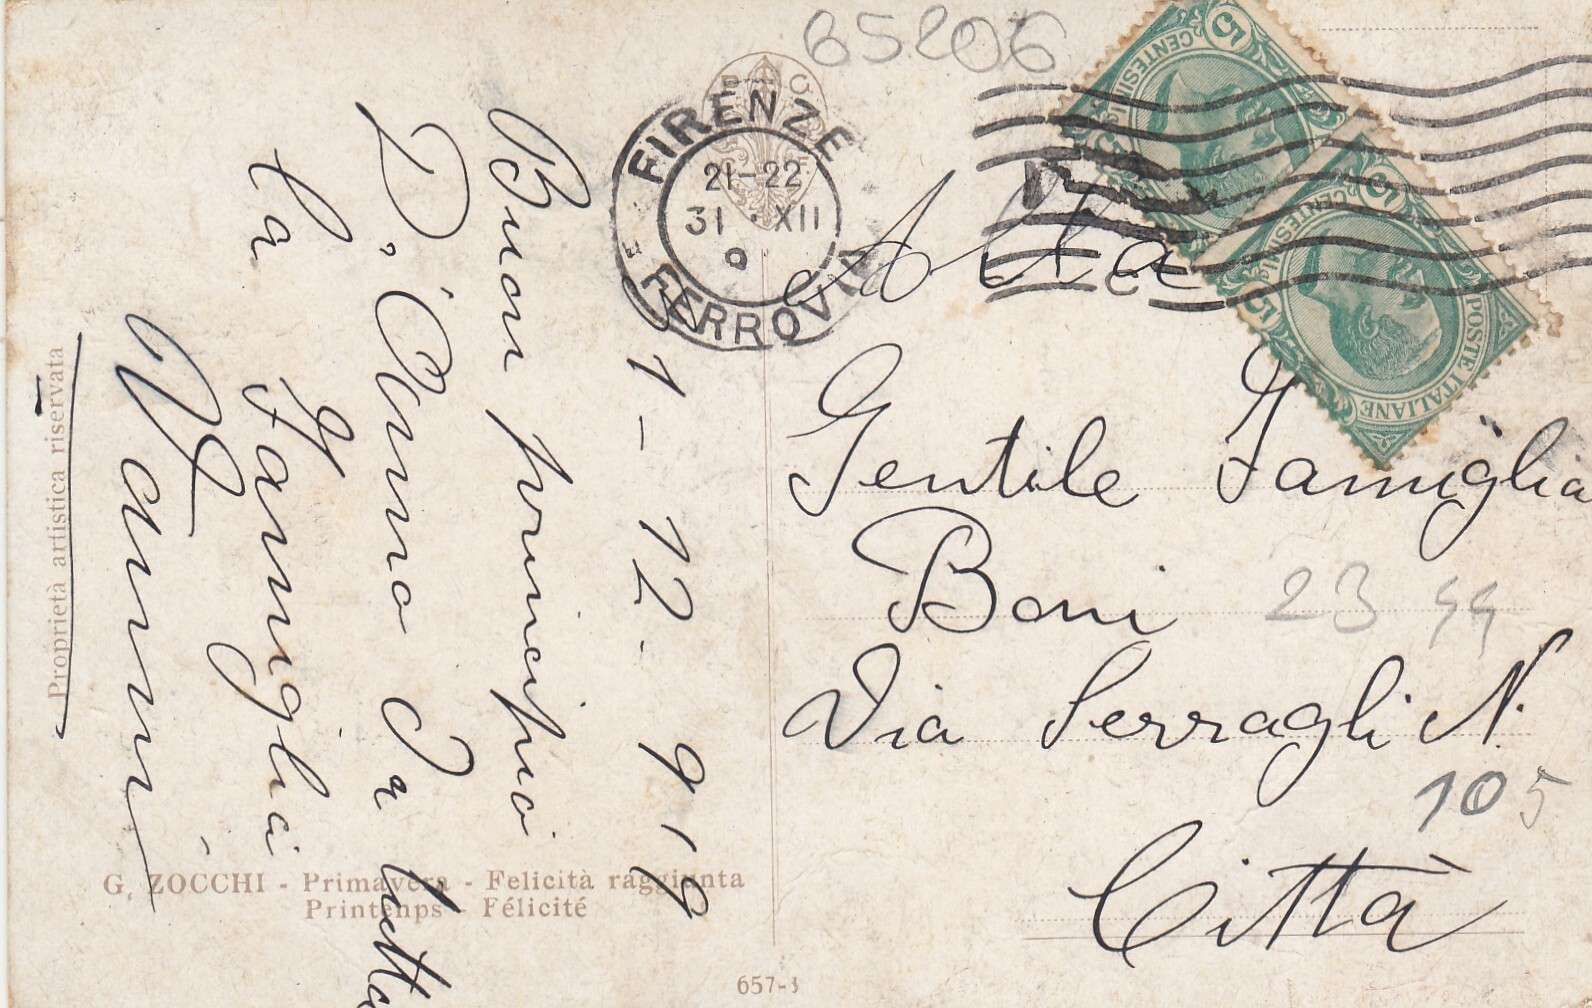 65206
FIRENZE
21-22
31 · XII
9
FERROVIA
CENTESIMI 5
5 CENTESIMI 5
POSTE ITALIANE
Alla
Gentile Famiglia
Boni
Via Serragli N.
105
Città
23 44
1 - 12. 919
Buon principio
D, Anno Da tutta
la Famiglia
Vannini
Proprietà artistica riservata
G. ZOCCHI - Primavera - Felicità raggiunta
Printemps - Félicité
657-3